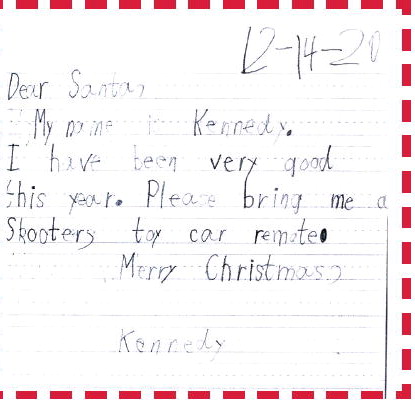 12-14-20
Dear Santa,
My name is Kennedy.
I have been very good
this year. Please bring me a
Skooters toy car remote.
Merry Christmas,
Kennedy